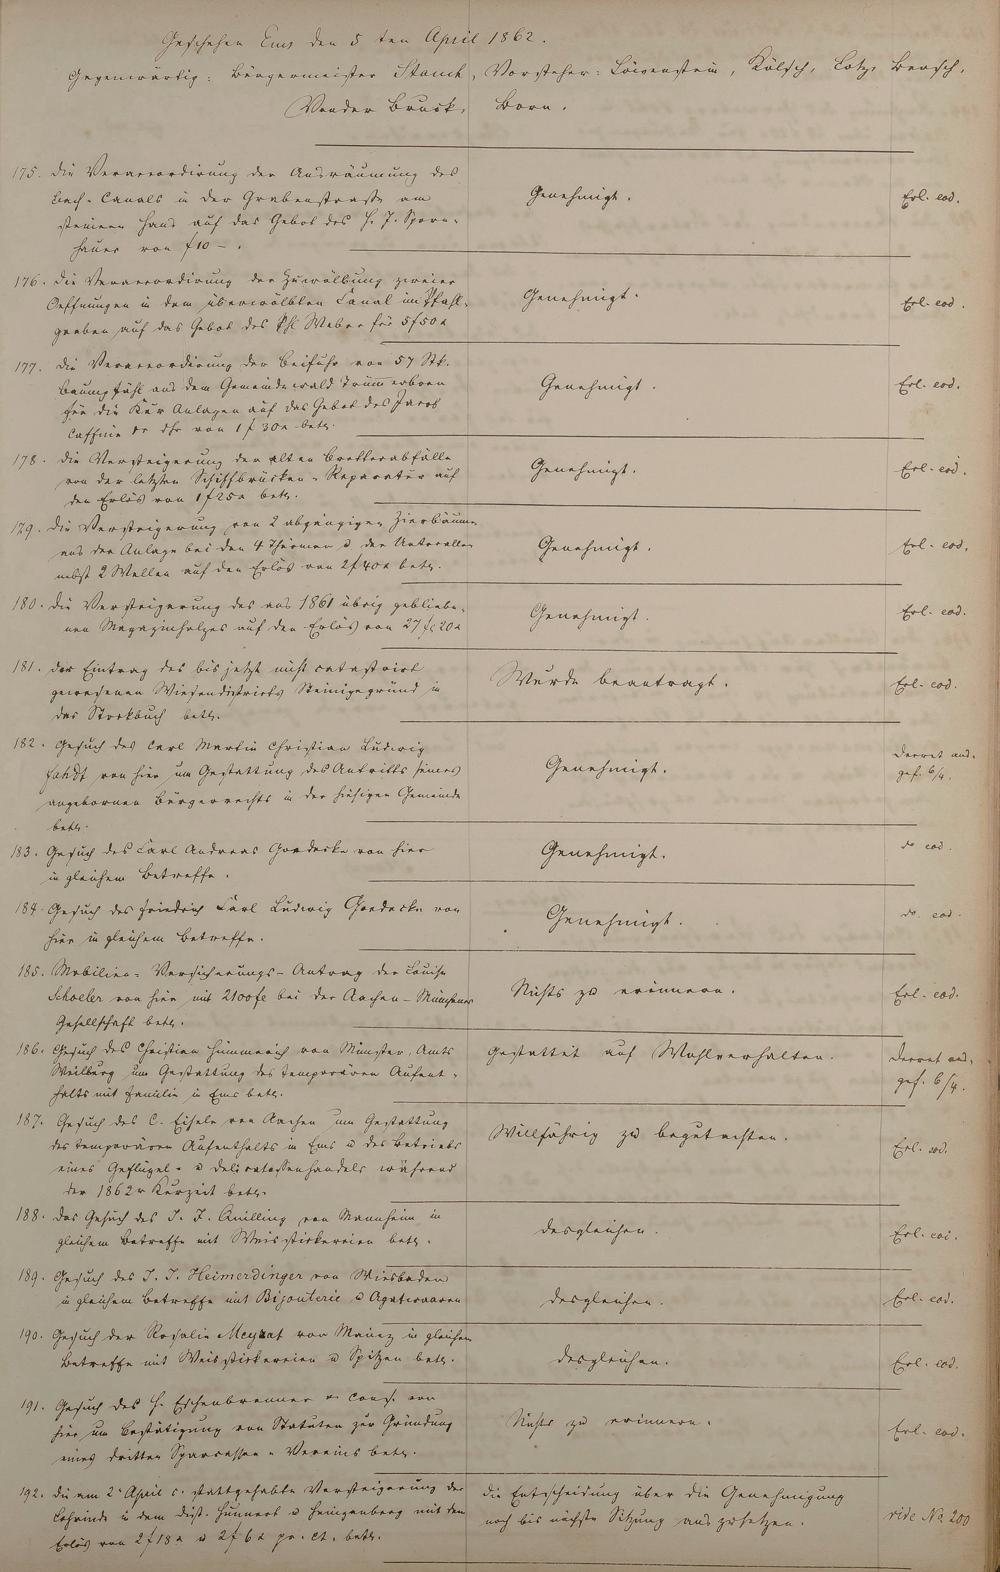 Geschehen Ems den 5 ten April 1862.
Gegenwärtig: Bürgermeister Stamm, Vorsteher: Löwenstein, Kölsch, Lotz, Bersch,
Vonder Bruck, Born.
175. Die Veraccordirung der Ausräumung des
Bach-Canals in der Grabenstraße am
steinern Haus auf das Gebot des H. J. Sporn-
hauer von f 10 –.
Genehmigt.
Erl. eod.
176. Die Veraccordirung der Zuwölbung zweier
Oeffnungen in dem überwölbten Canal im Pfahl-
graben auf das Gebot des Phl Weber für 5 f 50 x
Genehmigt.
Erl. eod.
177. Die Veraccordirung der Beifuhr von 57 Stk.
Baumpfähl aus dem Gemeindewald
für die Kur Anlagen auf das Gebot des Jacob
von 1 f 30 x betr.
Genehmigt.
Erl. eod.
178. Die Versteigerung der alten Bretterabfälle
von der letzten Schiffbrücken-Reparatur auf
den Erlös von 1 f 25 x betr.
Genehmigt.
Erl. eod.
179. Die Versteigerung von 2 abgängigen Zierbäumen
aus der Anlage bei den 4 Thürmen u der Unterallee
nebst 2 Wellen auf den Erlös von 2 f 40 x betr.
Genehmigt.
Erl. eod.
180. Die Versteigerung des aus 1861 übrig gebliebe-
nen Magazinholzes auf den Erlös von 27 f 20 x
Genehmigt.
Erl. eod.
181. Der Eintrag des bis jetzt nicht catastrirt
gewesenen Wiesendistricts Steinigegründ in
das Stockbuch betr.
Wurde beantragt.
Erl. eod.
182. Gesuch des Carl Martin Christian Ludwig
von hier um Gestattung des Antritts seines
angebornen Bürgerrechts in der hiesigen Gemeinde
betr.
Genehmigt.
Decret aus-
gef. 6/4.
183. Gesuch des Carl Andreas Goedecke von hier
in gleichem Betreffe.
Genehmigt.
do eod.
184. Gesuch des Friedrich Carl Ludwig Goedecke von
hier in gleichem Betreffe.
Genehmigt.
do. eod.
185. Mobilien-Versicherungs-Antrag der Louise
Schoeler von hier mit 2100 fl bei der Aachen-Münchener
Gesellschaft betr.
Nichts zu erinnern.
Erl. eod.
186. Gesuch des Christian Hümmerich von Münster, Amts
Weilburg um Gestattung des temporären Aufent-
halts mit Familie in Ems betr.
Gestattet auf Wohlverhalten.
Decret aus-
gef. 6/4.
187. Gesuch des C. Eisele von Aachen um Gestattung
des temporären Aufenthalts in Ems u des Betriebs
eines Geflügel- u Delicatessenhandels während
der 1862r Kurzeit betr.
Willfährig zu begutachten.
Erl. eod.
188. Das Gesuch des J. F. Quilling von Mannheim in
gleichem Betreffe mit Weisstickereien betr.
desgleichen.
Erl. eod.
189. Gesuch des J. J. Heimerdinger von Wiesbaden
in gleichem Betreffe mit Bijouterie u Agatwaaren
desgleichen.
Erl. eod.
190. Gesuch der Rosalie Meyrat von Mainz in gleichem
Betreffe mit Weisstickereien u Spitzen betr.
desgleichen.
Erl. eod.
191. Gesuch des H. Eschenbrenner & Cons. von
hier um Bestätigung von Statuten zur Gründung
eines dritten Sparcassen-Vereins betr.
Nichts zu erinnern.
Erl. eod.
192. Die am 2. April c. stattgehabte Versteigerung der
Lohrinde in dem Distr. Hünnert u Heingenberg mit dem
Erlös von 2 f 18 x u 2 f 6 x pr. Ct. betr.
Die Entscheidung über die Genehmigung
noch bis nächste Sitzung auszusetzen.
vide No. 200